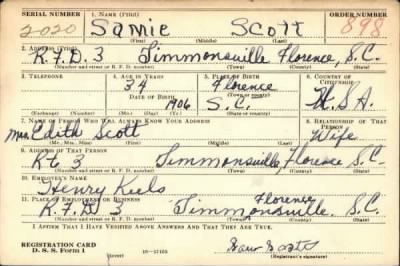 SERIAL NUMBER 1. NAME (Print) ORDER NUMBER
2020 Samie Scott 898
(First) (Middle) (Last)
2. ADDRESS (Print)
R.F.D. 3 Timmonsville Florence, S.C.
(Number and street or R. F. D. number) (Town) (County) (State)
3. TELEPHONE 4. AGE IN YEARS 5. PLACE OF BIRTH 6. COUNTRY OF CITIZENSHIP
34 Florence
DATE OF BIRTH (Town or county)
1906 S.C. U.S.A.
(Exchange) (No.) (Mo.) (Day) (Yr.) (State or country)
7. NAME OF PERSON WHO WILL ALWAYS KNOW YOUR ADDRESS 8. RELATIONSHIP OF THAT PERSON
Mrs. Edith Scott Wife
(Mr., Mrs., Miss) (First) (Middle) (Last)
9. ADDRESS OF THAT PERSON
Rt 3 Timmonsville, Florence S.C.
(Number and street or R. F. D. number) (Town) (County) (State)
10. EMPLOYER'S NAME
Henry Keels
11. PLACE OF EMPLOYMENT OR BUSINESS Florence
R.F.D. 3 Timmonsville. S.C.
(Number and street or R. F. D. number) (Town) (County) (State)
I AFFIRM THAT I HAVE VERIFIED ABOVE ANSWERS AND THAT THEY ARE TRUE.
REGISTRATION CARD
D. S. S. Form 1 (over) (Registrant's signature)